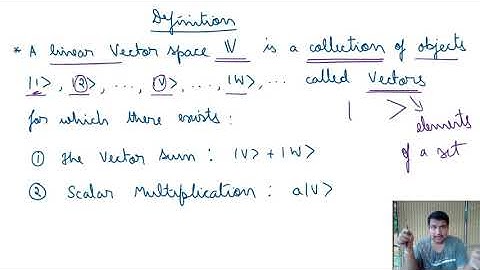 Definition
* A linear Vector space V is a collection of objects
|1>, |2>, ..., |V>, ..., |W>, ... called Vectors
for which there exists :
| >
elements
of a set
① The Vector Sum : |V> + |W>
② Scalar Multiplication : a|V>